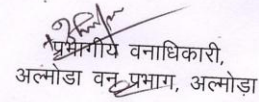 प्रभागीय वनाधिकारी,
अल्मोडा वन प्रभाग, अल्मोड़ा